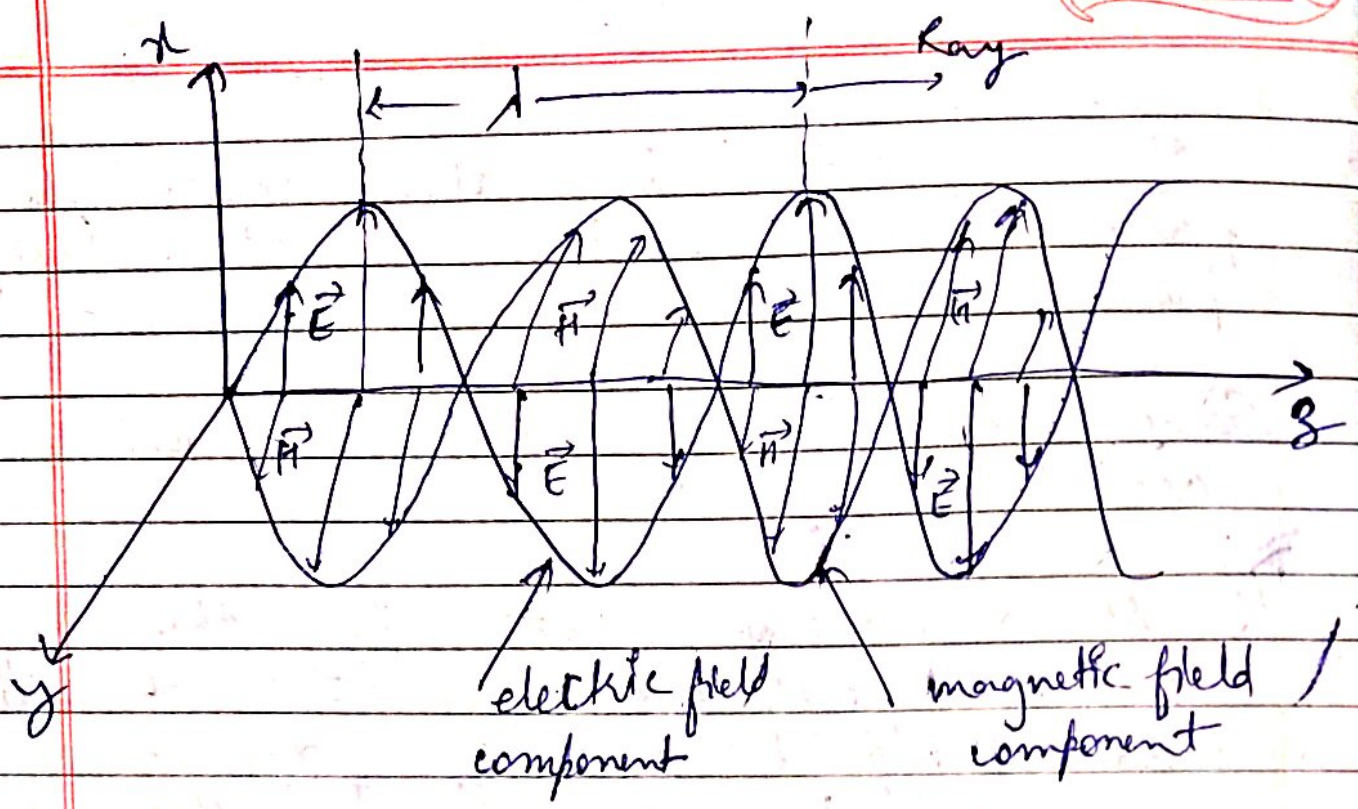 x
λ
Ray
E⃗
H⃗
E⃗
H⃗
H⃗
E⃗
H⃗
E⃗
z
y
electric field
component
magnetic field
component